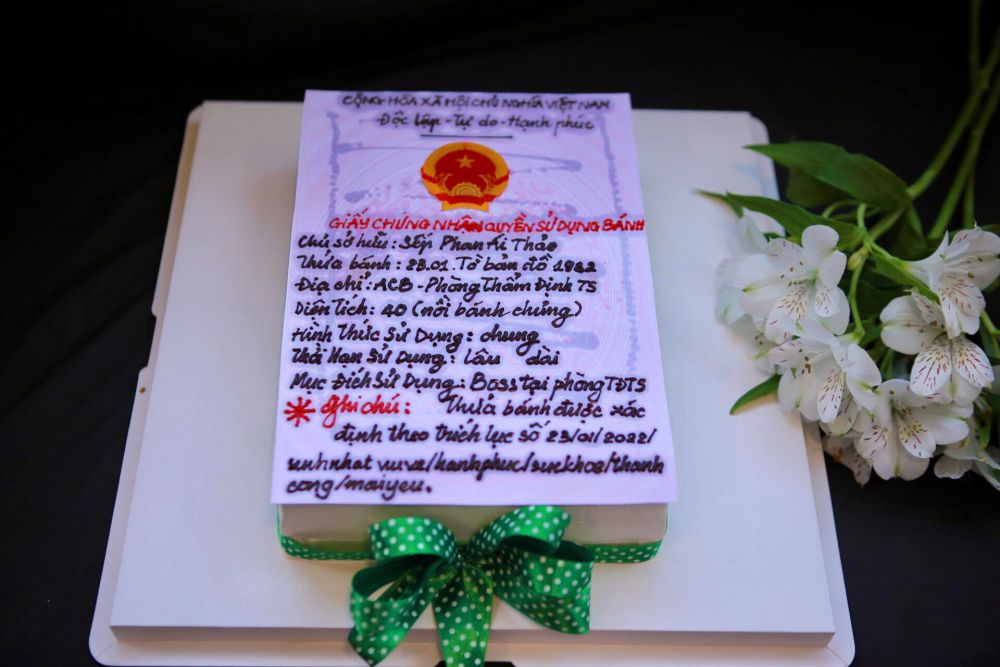 CỘNG HÒA XÃ HỘI CHỦ NGHĨA VIỆT NAM
Độc lập - Tự do - Hạnh phúc
GIẤY CHỨNG NHẬN QUYỀN SỬ DỤNG BÁNH
Chủ sở hữu: Sếp Phan Ái Thảo
Thửa bánh: 23.01. Tờ bản đồ 1982
Địa chỉ: ACB - Phòng Thẩm Định TS
Diện Tích: 40 (nồi bánh chưng)
Hình Thức Sử Dụng: chung
Thời Hạn Sử Dụng: lâu dài
Mục Đích Sử Dụng: Boss tại phòng TĐTS
* Ghi chú: Thửa bánh được xác
định theo trích lục số 23/01/2022/
sinhnhat vuve/hanhphuc/suckhoe/thanh
cong/maiyeu.